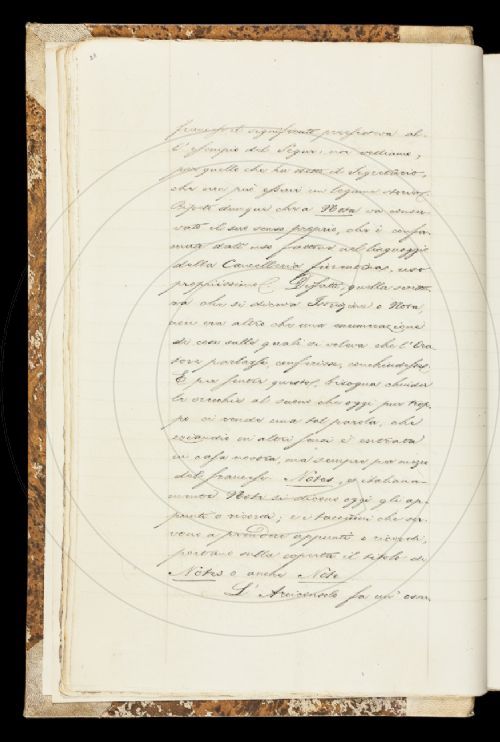 francese il significato preferiva al-
l'esempio del Segur: noi vediamo,
per quello che ha il Segretario,
che non può essere un legame
Ripeto dunque che a Nota va conser-
vato il suo senso proprio, che è confer-
mato dall'uso nel linguaggio
della Cancelleria fiorentina, uso
propriissimo. Difatti, quella scrittu-
ra che si diceva Istruzione o Nota,
non era altro che una enumerazione
di cose sulle quali si voleva che l'Ora-
tore parlasse, conferisse, conchiudesse.
E per questo, bisogna chiuder
le orecchie al suono che oggi pur trop-
po ci rende una tal parola, che
eziandio in altri sensi è entrata
in casa nostra, ma sempre per mezzo
del francese. Notes, e italiana-
mente Note si dicono oggi gli ap-
punti o ricordi; e i taccuini che ser-
vono a prendere appunti e ricordi,
portano sulla coperta il titolo di
Notes o anche Note.
L'Arciconsolo fa un' osser-